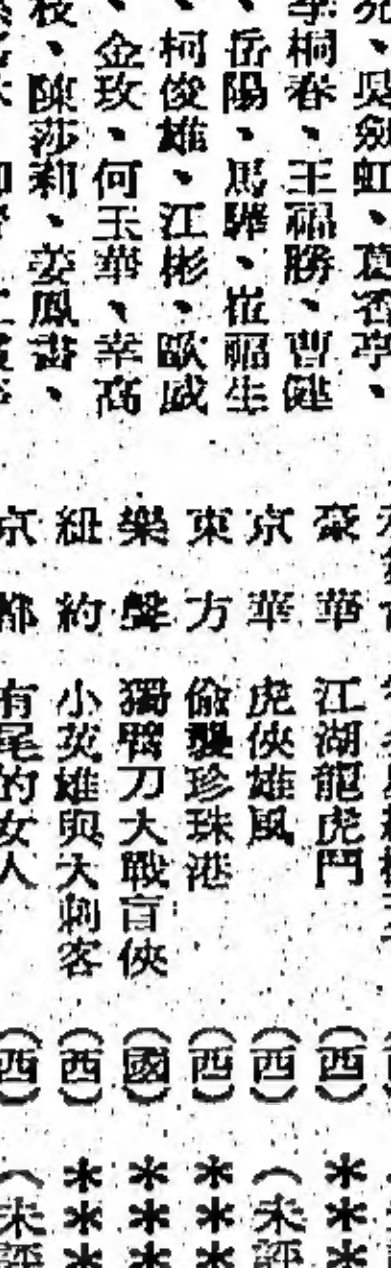 、吳劍虹、葛香亭、
李桐春、王福勝、曹健
、岳陽、馬驊、崔福生
、柯俊雄、江彬、歐威
、金玫、何玉華、幸高
枝、陳莎莉、姜鳳書、
豪華 江湖龍虎鬥 (西) ***
京華 虎俠雄風 (西) (未評
東方 偷襲珍珠港 (西) ***
樂聲 獨臂刀大戰盲俠 (國) ***
紐約 小英雄與大刺客 (西) ***
京都 有尾的女人 (西) (未評